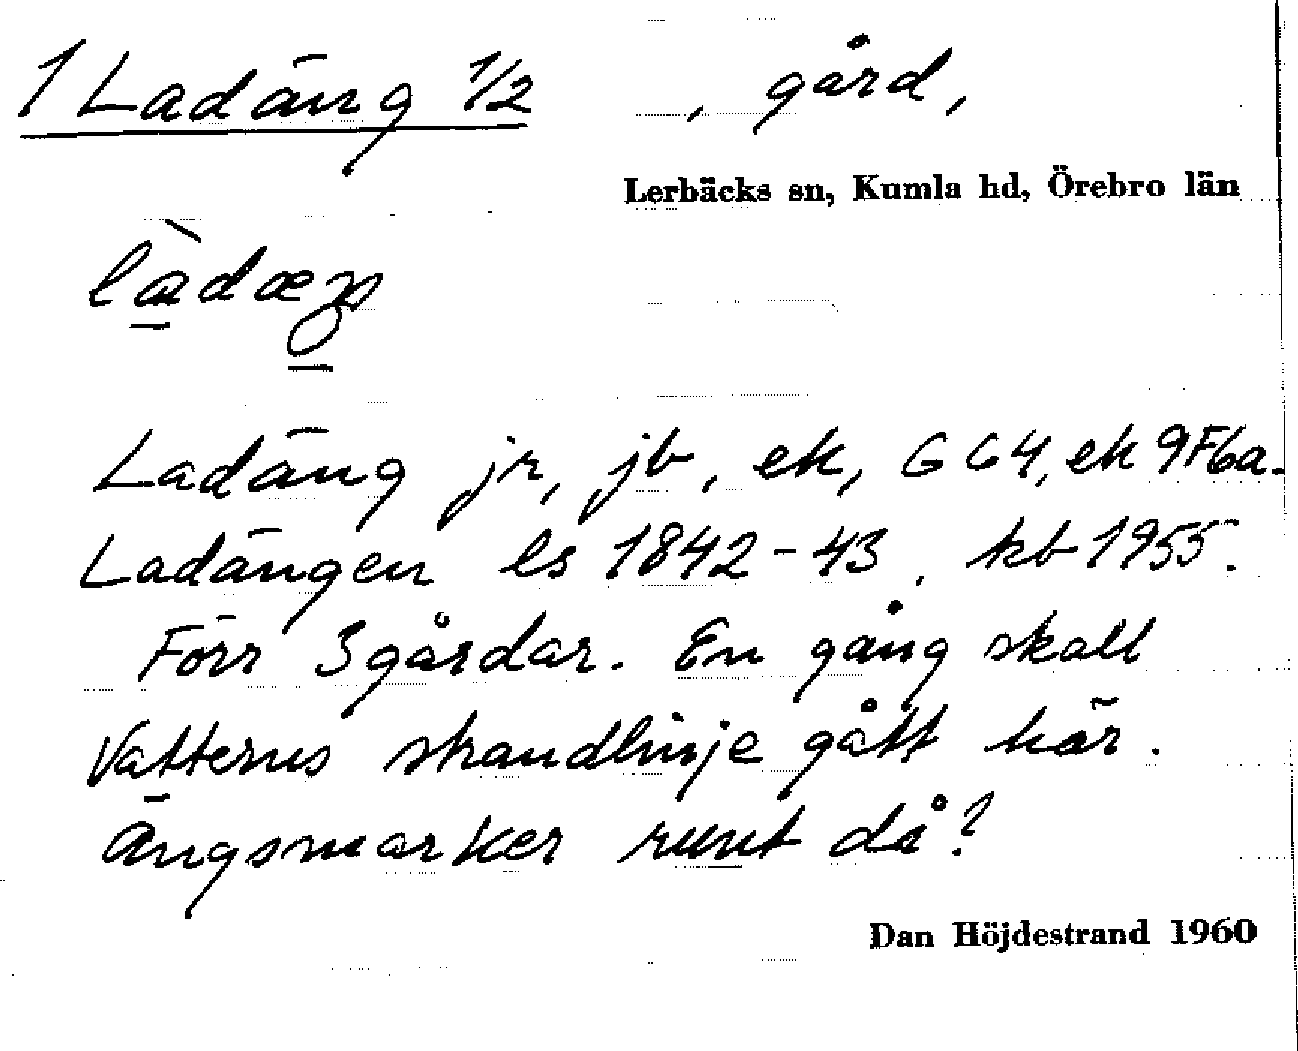 1 Ladäng 1/2 , gård,
Lerbäcks sn, Kumla hd, Örebro län
Ladäng jr, jb, ek, GG4, ek 9F6a.
Ladängen ls 1842-43, kb 1955.
Förr 3 gårdar. En gång skall
Vatterns strandlinje gått här.
Ängsmarker runt då?
Dan Höjdestrand 1960